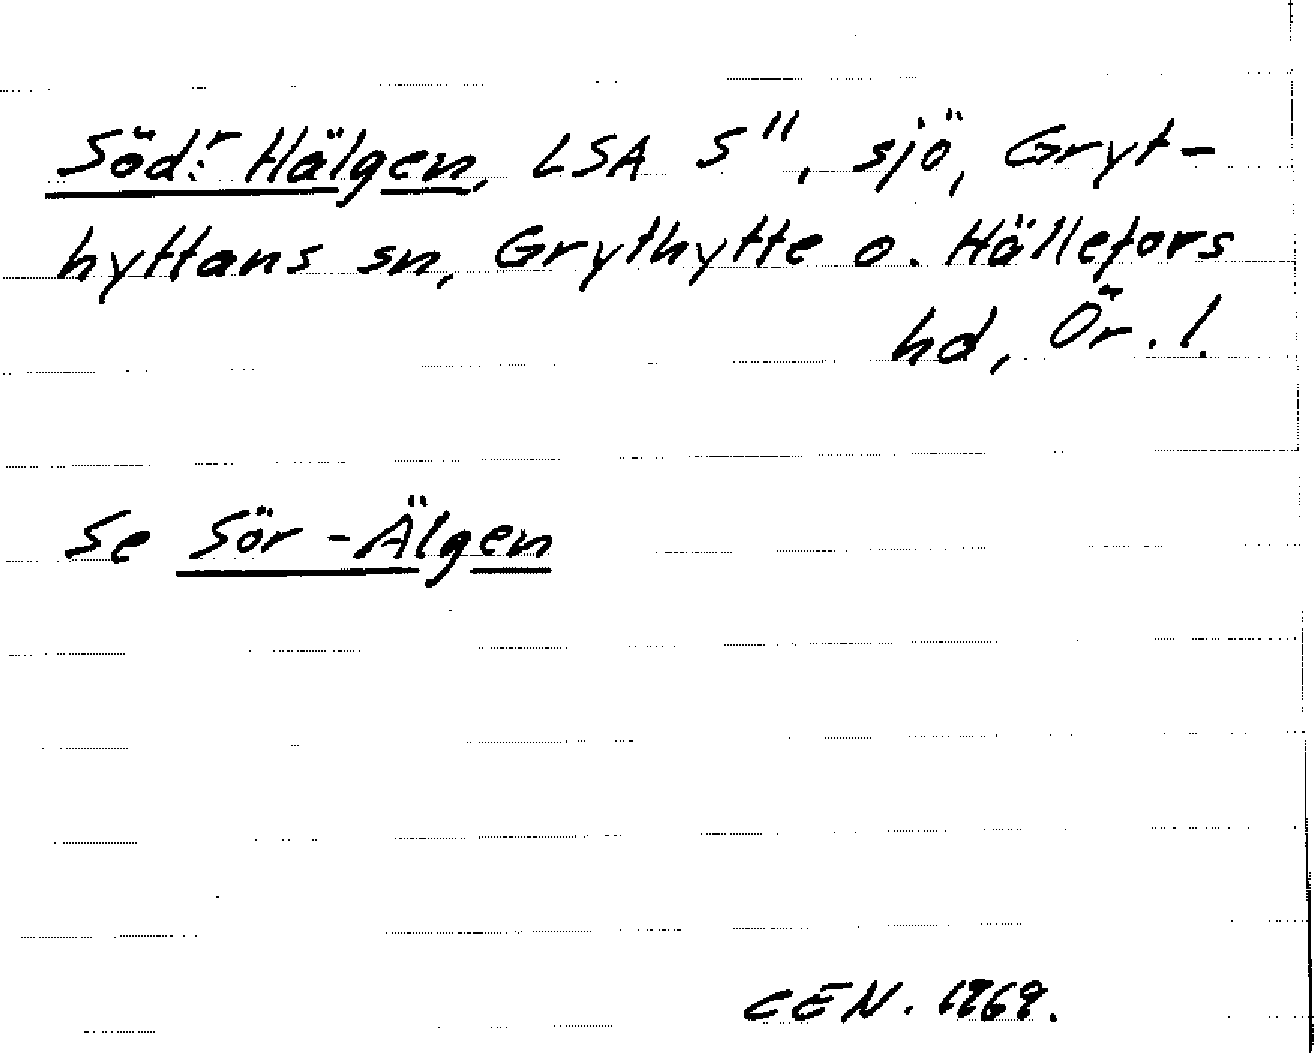 Söd:r Hälgen, LSA S", sjö, Gryt-
hyttans sn, Grythytte o. Hällefors
hd, Ör. l.
Se Sör-Älgen
CEN. 1969.